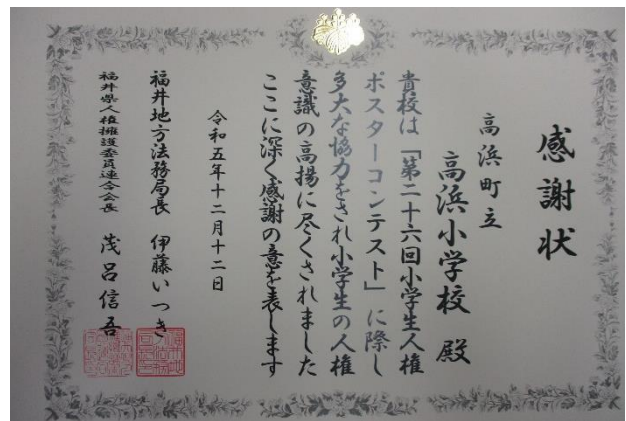 感謝状
高浜町立
高浜小学校 殿
貴校は「第二十六回小学生人権
ポスターコンテスト」に際し
多大な協力をされ小学生の人権
意識の高揚に尽くされました
ここに深く感謝の意を表します
令和五年十二月十二日
福井地方法務局長 伊藤いつき
福井県人権擁護委員連合会長 茂呂信吾